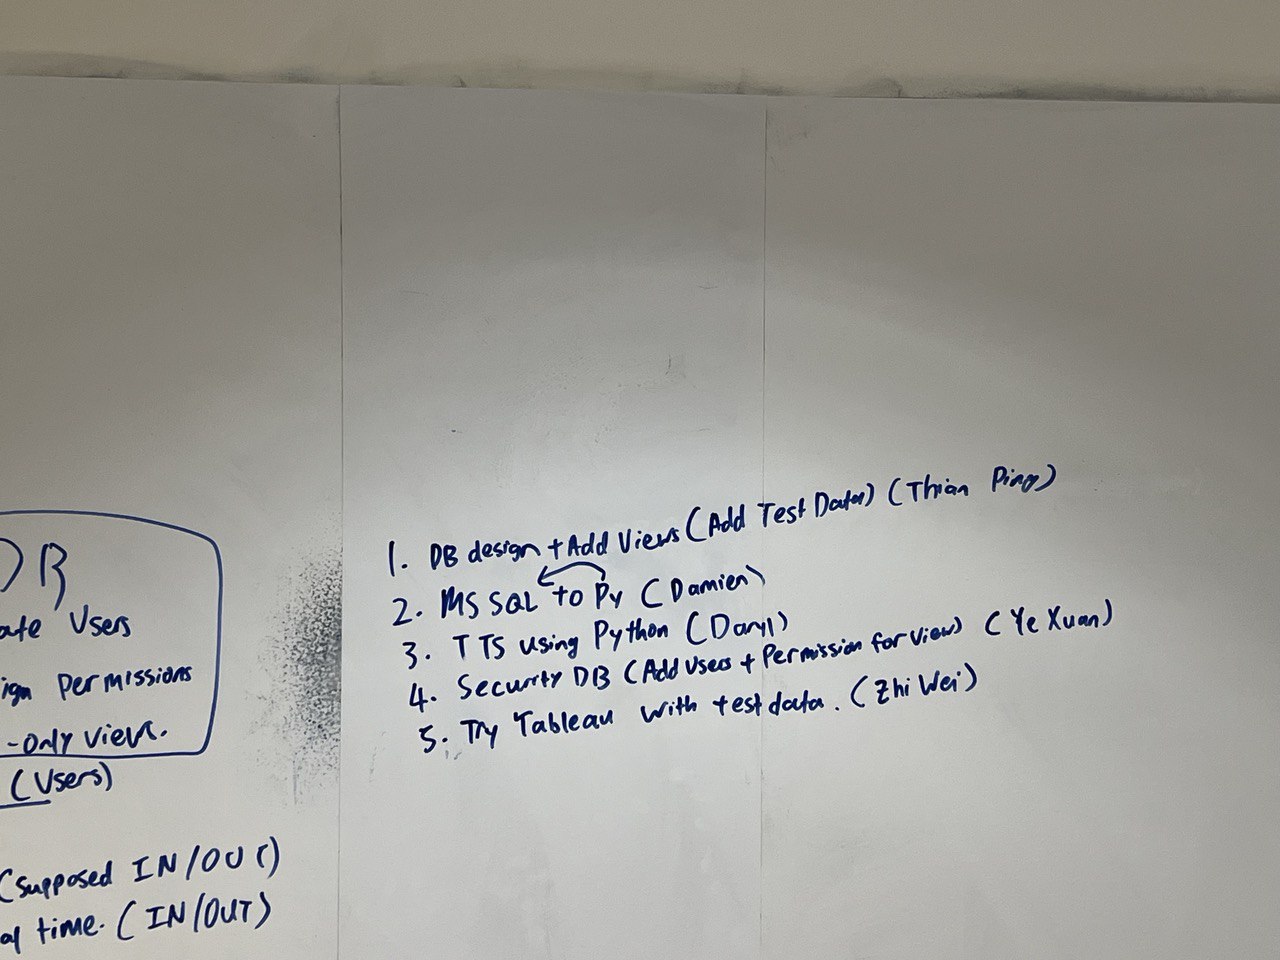 DB
Users
Permissions
-only view.
(Users)
(supposed IN/OUT)
time. (IN/OUT)
1. DB design + Add Views (Add Test Data) (Thian Ping)
2. MS SQL to Py (Damien)
3. TTS using Python (Daryl)
4. Security DB (Add Users + Permission for view) (Ye Xuan)
5. Try Tableau with test data. (Zhi Wei)